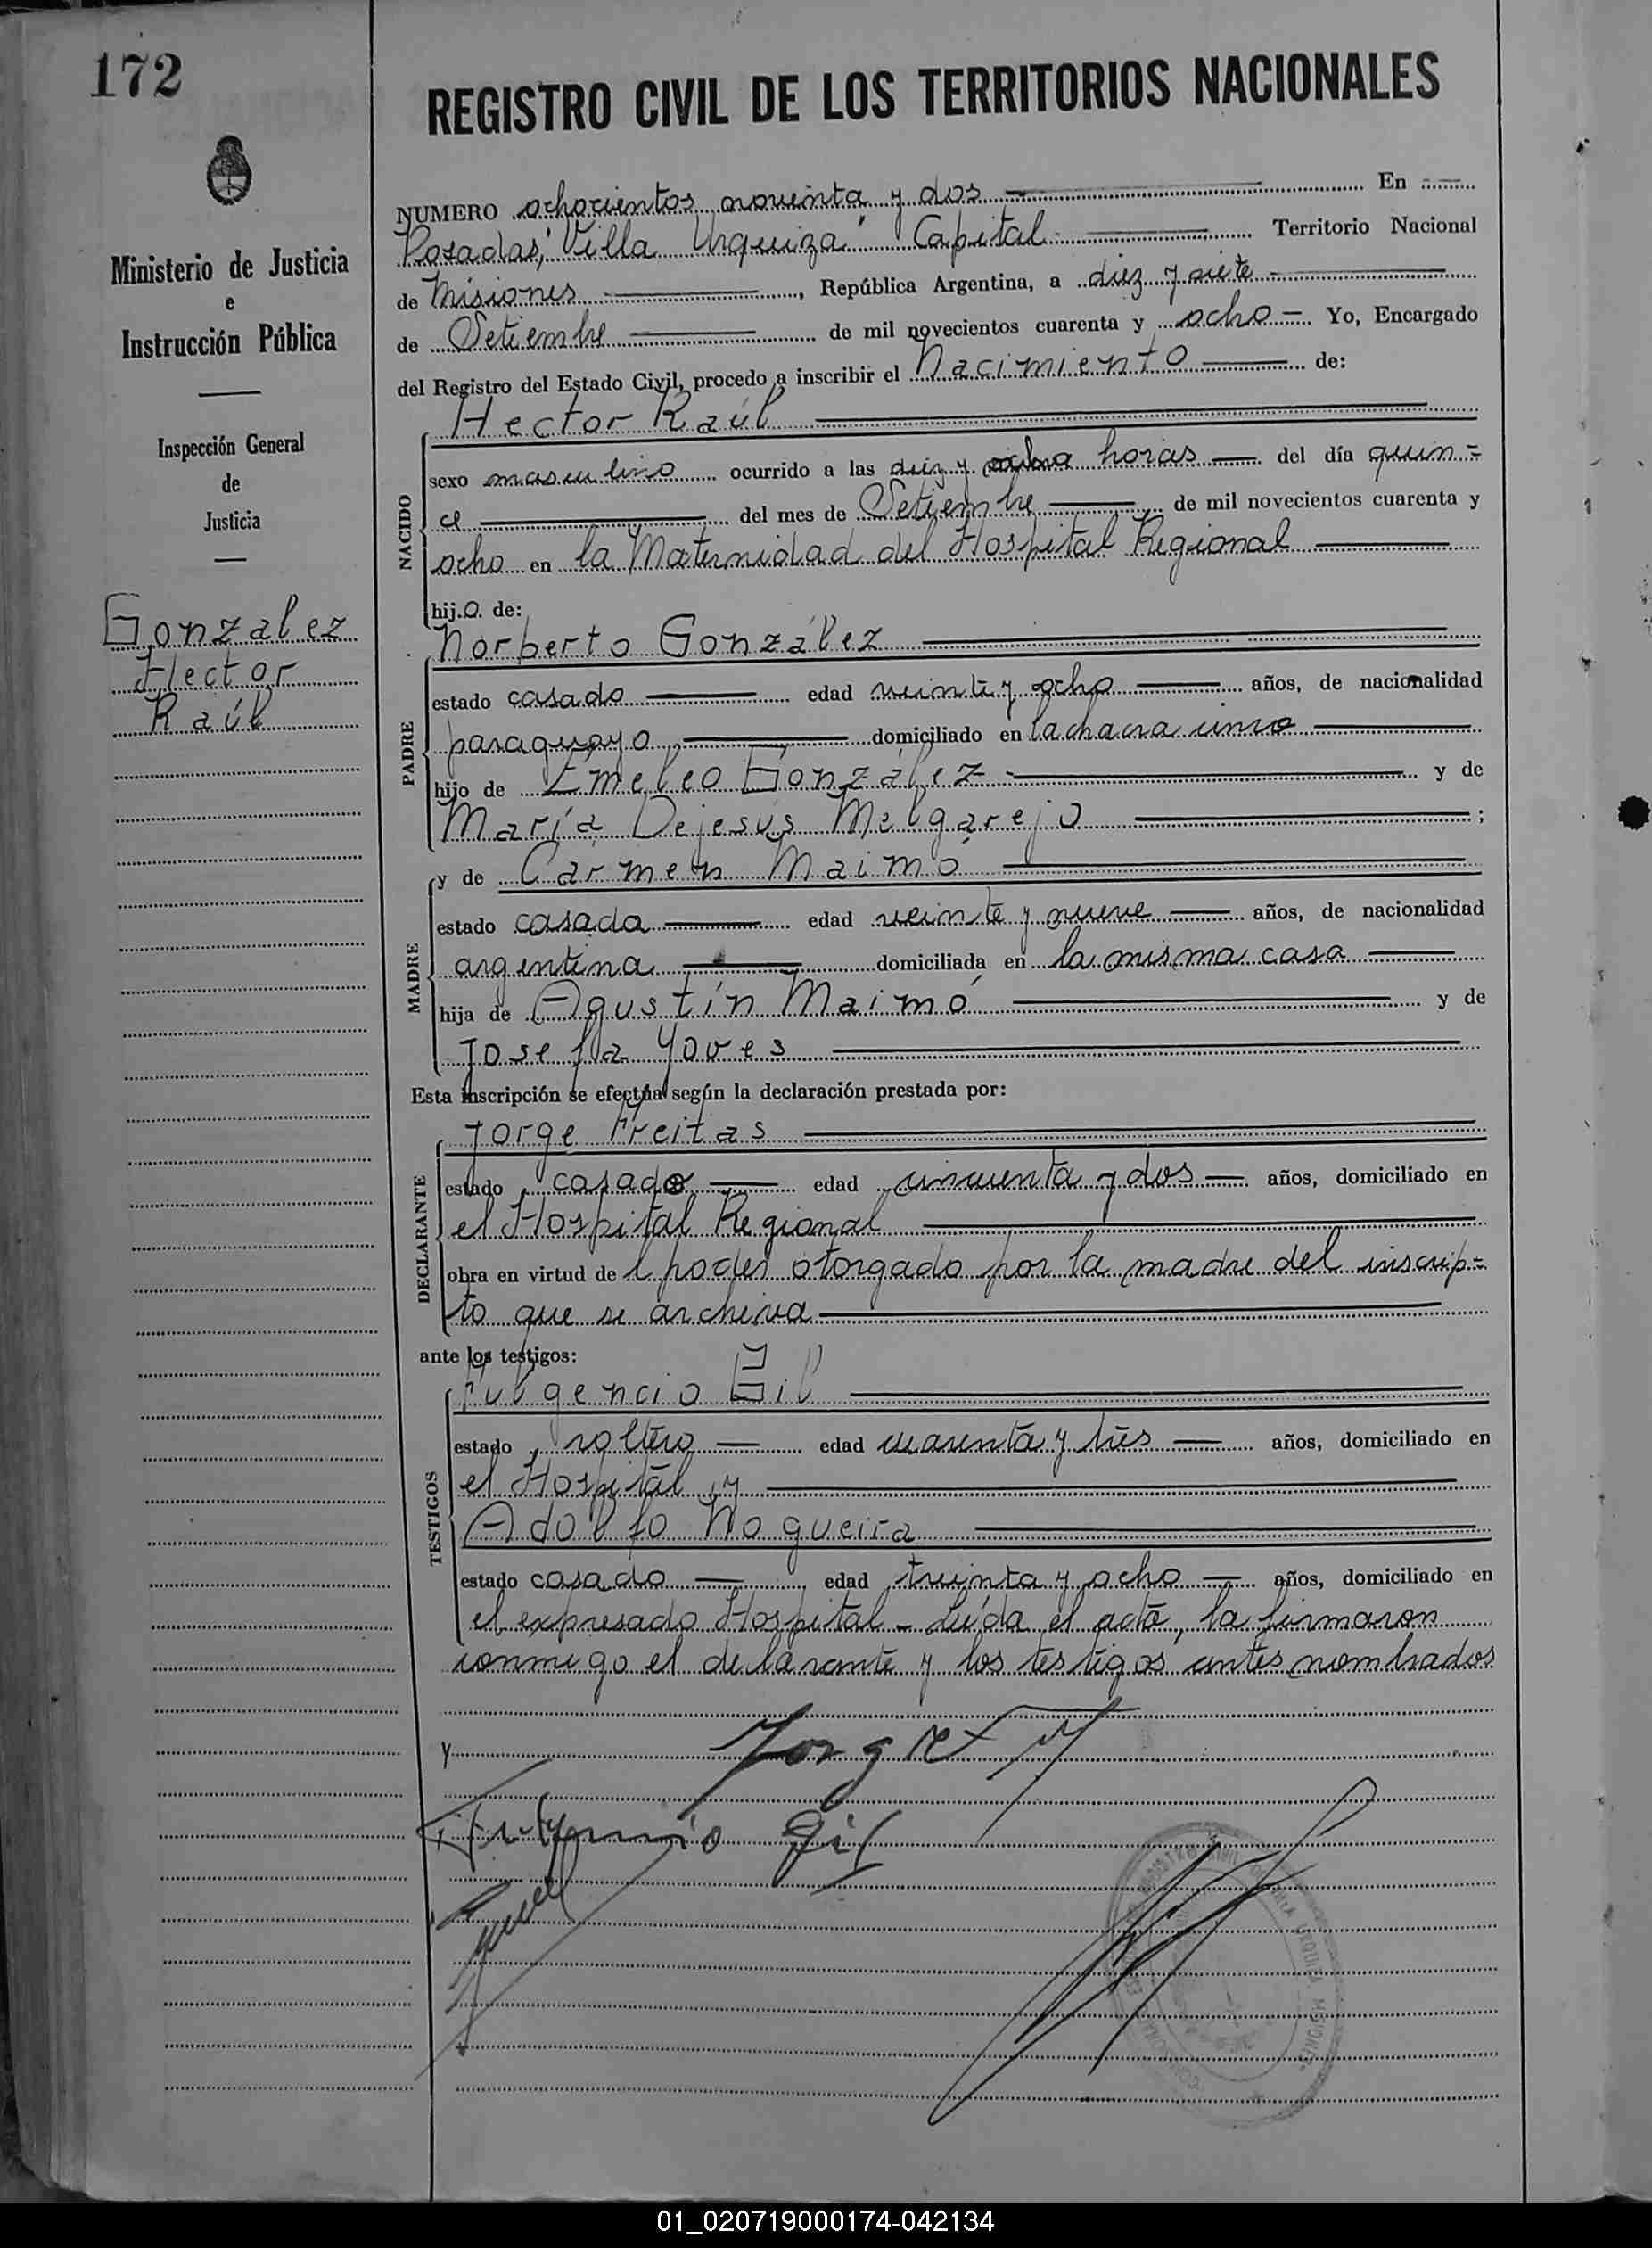 172
REGISTRO CIVIL DE LOS TERRITORIOS NACIONALES
Ministerio de Justicia
e
Instrucción Pública
Inspección General
de
Justicia
Gonzalez
Hector
Raúl
NUMERO ochocientos noventa y dos En
Posadas, "Villa Urquiza" Capital Territorio Nacional
de Misiones, República Argentina, a diez y siete
de Setiembre de mil novecientos cuarenta y ocho Yo, Encargado
del Registro del Estado Civil, procedo a inscribir el Nacimiento de:
Hector Raúl
NACIDO
sexo masculino ocurrido a las diez y horas del día quin=
ce del mes de Setiembre de mil novecientos cuarenta y
ocho en la Maternidad del Hospital Regional
hijo de:
Norberto González
PADRE
estado casado edad veinte y ocho años, de nacionalidad
paraguayo domiciliado en la chacra uno
hijo de Emeleo González y de
María Dejesús Melgarejo ;
MADRE
y de Carmen Maimó
estado casada edad veinte y nueve años, de nacionalidad
argentina domiciliada en la misma casa
hija de Agustín Maimó y de
Josefa Yoves
Esta inscripción se efectúa según la declaración prestada por:
Jorge Freitas
DECLARANTE
estado casado edad cincuenta y dos años, domiciliado en
el Hospital Regional
obra en virtud del poder otorgado por la madre del inscrip=
to que se archiva
ante los testigos:
Fulgencio Gil
TESTIGOS
estado soltero edad cuarenta y tres años, domiciliado en
el Hospital y
Adolfo Nogueira
estado casado edad treinta y ocho años, domiciliado en
el expresado Hospital - Leída el acta, la firmaron
conmigo el declarante y los testigos antes nombrados
y
Fulgencio Gil
01_020719000174-042134